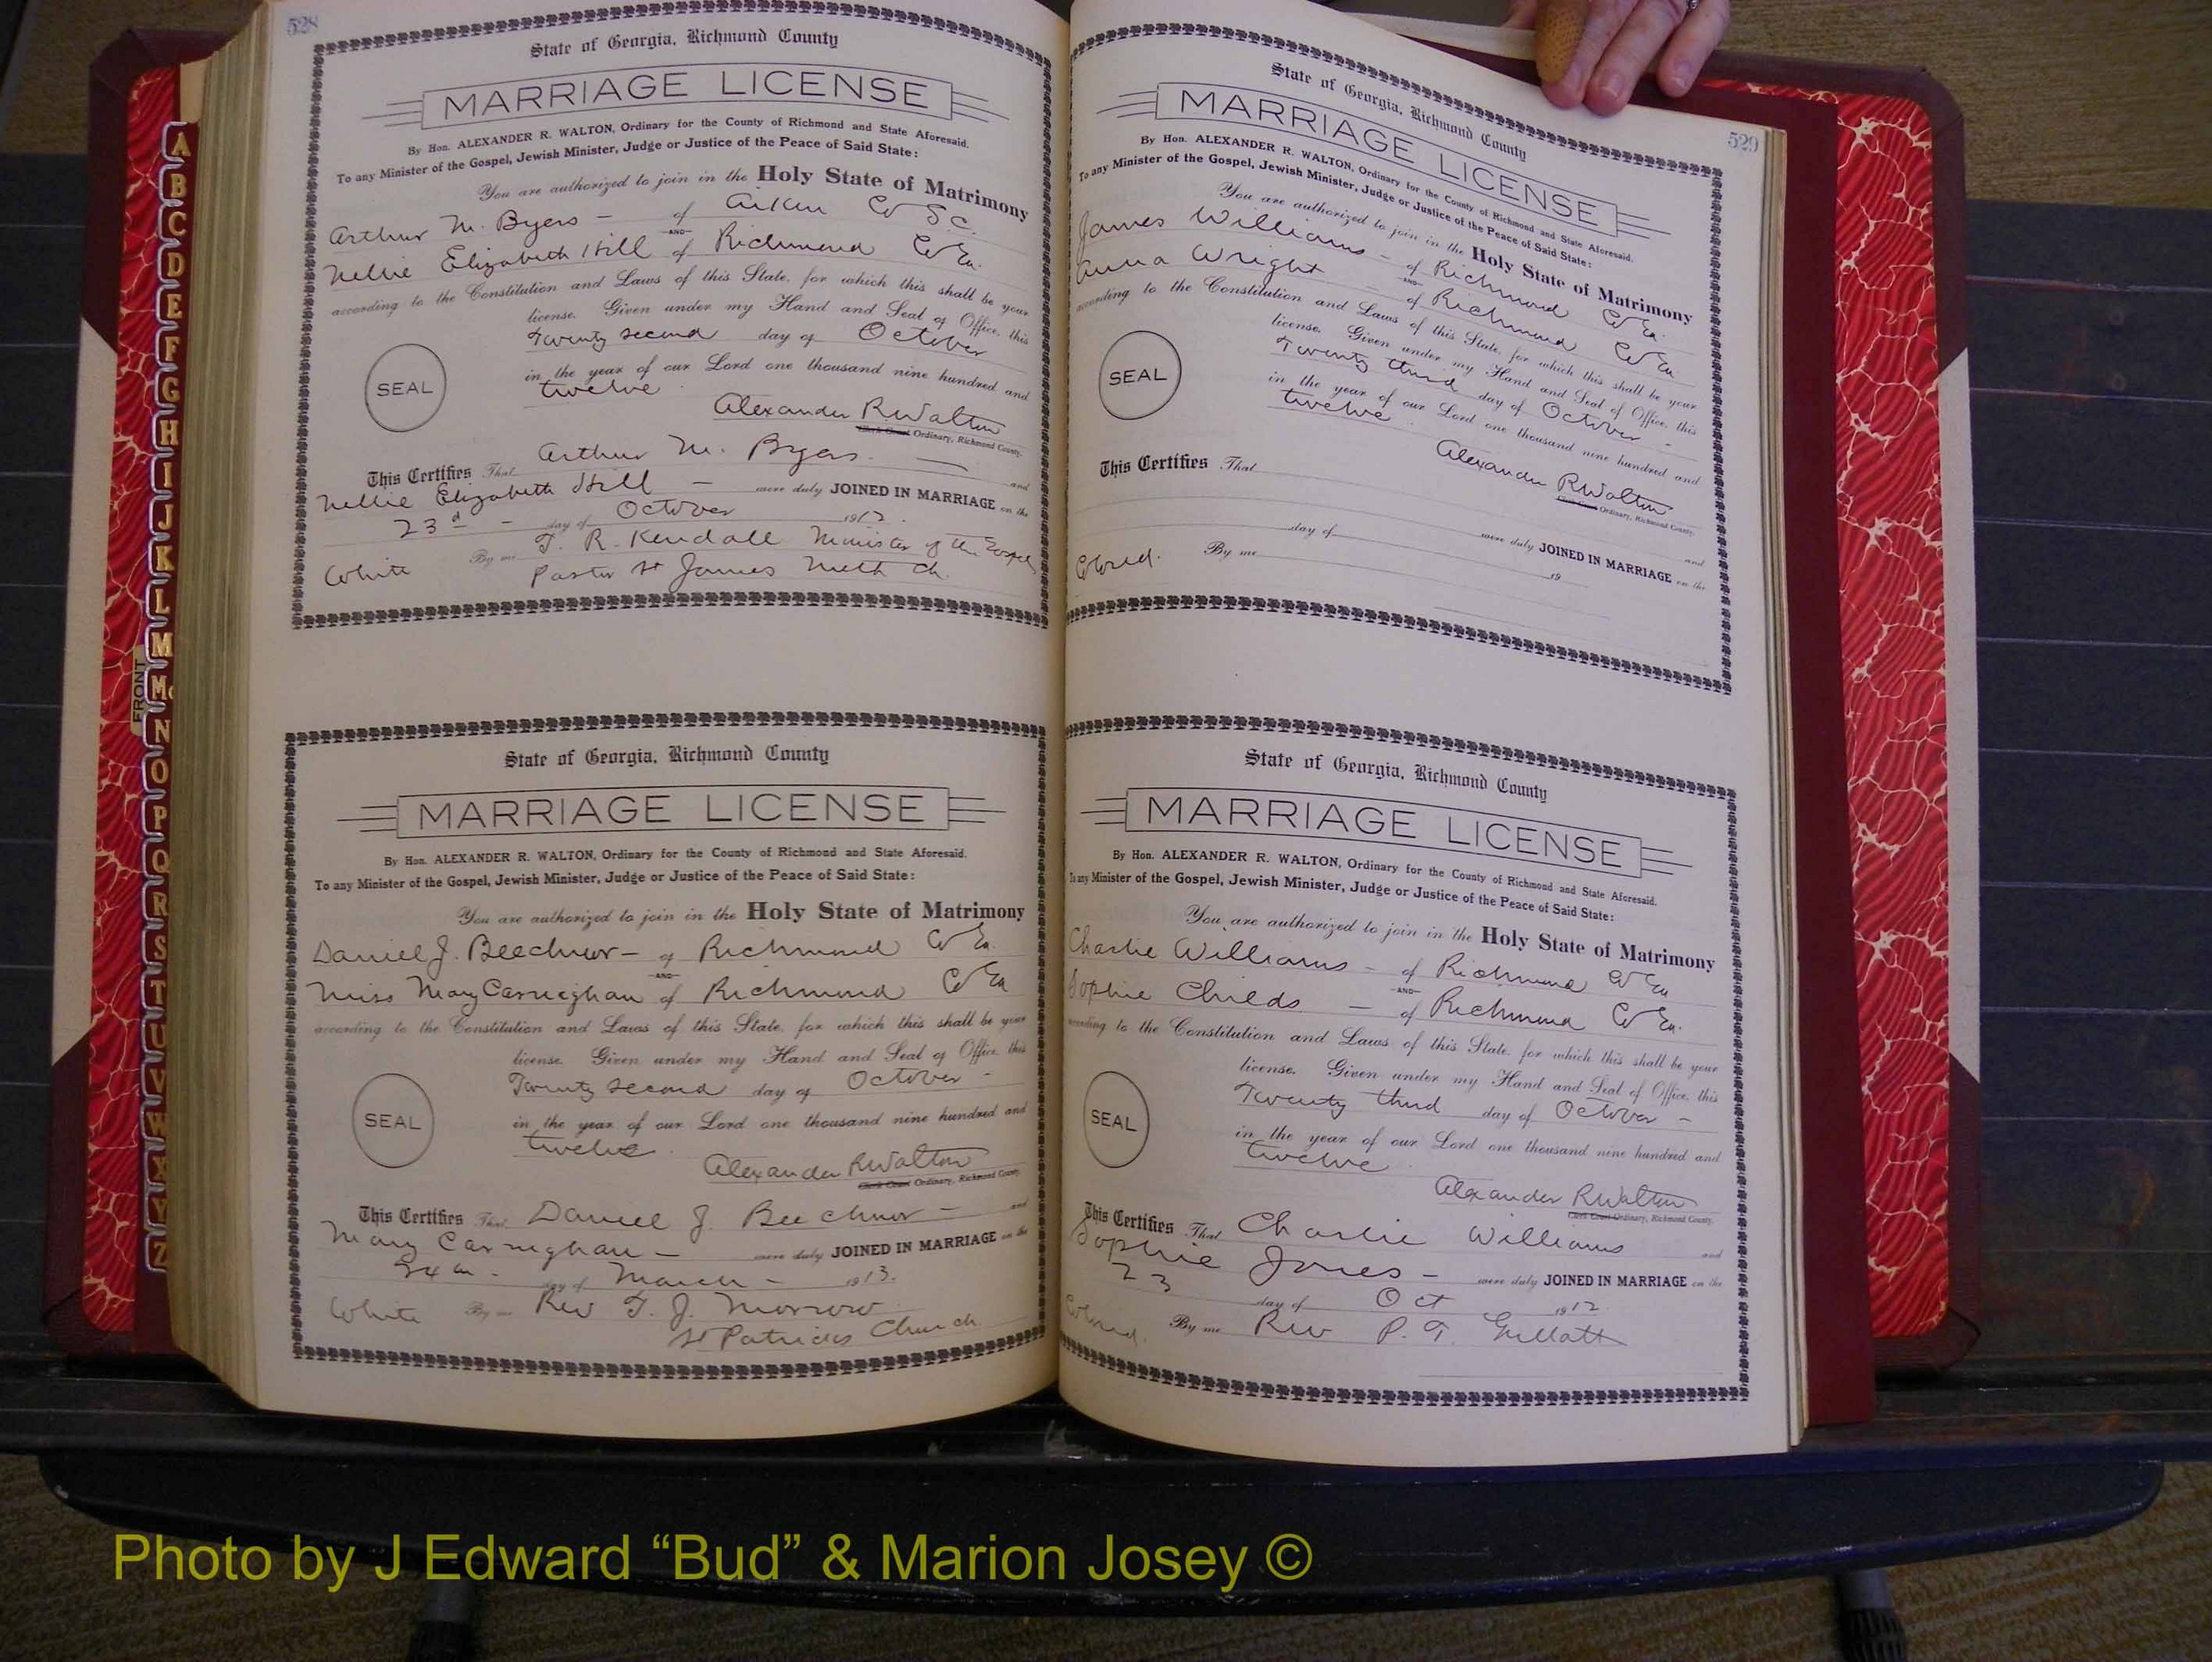 528
State of Georgia, Richmond County
MARRIAGE LICENSE
By Hon. ALEXANDER R. WALTON, Ordinary for the County of Richmond and State Aforesaid.
To any Minister of the Gospel, Jewish Minister, Judge or Justice of the Peace of Said State:
You are authorized to join in the Holy State of Matrimony
Arthur M. Byers - of Aiken Co S.C.
AND
Nellie Elizabeth Hill of Richmond Co Ga.
according to the Constitution and Laws of this State, for which this shall be your
license. Given under my Hand and Seal of Office, this
Twenty second day of October
SEAL
in the year of our Lord one thousand nine hundred and
twelve
Alexander R Walton
Clerk Court Ordinary, Richmond County.
This Certifies That Arthur M. Byers. and
Nellie Elizabeth Hill - were duly JOINED IN MARRIAGE on the
23d - day of October 1912.
White By me T. R. Kendall Minister of the Gospel
Pastor St James Meth Ch.
State of Georgia, Richmond County
MARRIAGE LICENSE
By Hon. ALEXANDER R. WALTON, Ordinary for the County of Richmond and State Aforesaid.
To any Minister of the Gospel, Jewish Minister, Judge or Justice of the Peace of Said State:
You are authorized to join in the Holy State of Matrimony
Daniel J. Beechnor - of Richmond Co Ga.
AND
Miss Mary Carneghan of Richmond Co Ga
according to the Constitution and Laws of this State, for which this shall be your
license. Given under my Hand and Seal of Office, this
Twenty second day of October -
SEAL
in the year of our Lord one thousand nine hundred and
twelve.
Alexander R Walton
Clerk Court Ordinary, Richmond County
This Certifies That Daniel J. Beechnor - and
Mary Carneghan - were duly JOINED IN MARRIAGE on the
day of March - 1913.
White By me Rev T. J. Morrow
St Patricks Church.
529
State of Georgia, Richmond County
MARRIAGE LICENSE
By Hon. ALEXANDER R. WALTON, Ordinary for the County of Richmond and State Aforesaid.
To any Minister of the Gospel, Jewish Minister, Judge or Justice of the Peace of Said State:
You are authorized to join in the Holy State of Matrimony
James Williams - of Richmond Co Ga.
AND
Anna Wright of Richmond Co Ga.
according to the Constitution and Laws of this State, for which this shall be your
license. Given under my Hand and Seal of Office, this
Twenty third day of October -
SEAL
in the year of our Lord one thousand nine hundred and
twelve.
Alexander R Walton
Clerk Court Ordinary, Richmond County
This Certifies That and
were duly JOINED IN MARRIAGE on the
day of 19
Colored. By me
State of Georgia, Richmond County
MARRIAGE LICENSE
By Hon. ALEXANDER R. WALTON, Ordinary for the County of Richmond and State Aforesaid.
To any Minister of the Gospel, Jewish Minister, Judge or Justice of the Peace of Said State:
You are authorized to join in the Holy State of Matrimony
Charlie Williams - of Richmond Co Ga
AND
Sophie Childs - of Richmond Co Ga.
according to the Constitution and Laws of this State, for which this shall be your
license. Given under my Hand and Seal of Office, this
Twenty third day of October -
SEAL
in the year of our Lord one thousand nine hundred and
twelve.
Alexander R Walton
Clerk Court Ordinary, Richmond County.
This Certifies That Charlie Williams and
Sophie Jones - were duly JOINED IN MARRIAGE on the
23 day of Oct 1912.
Colored. By me Rev P. T.
A
B
C
D
E
F
G
H
I
J
K
L
M
Mc
N
O
P
Q
R
S
T
U
V
W
X
Y
Z
FRONT
Photo by J Edward “Bud” & Marion Josey ©